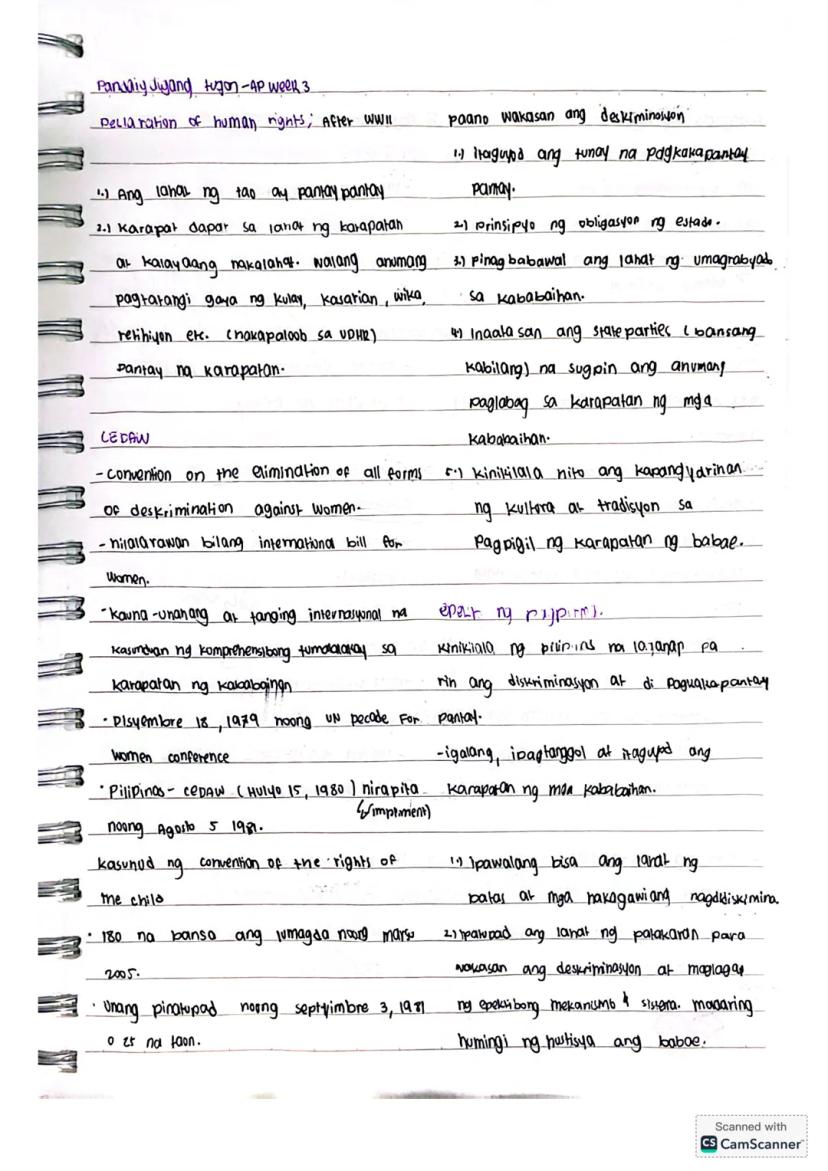 Pandaigdigang tugon - AP Week 3
Declaration of human rights; After WWII
1.) Ang lahat ng tao ay pantay pantay
2.) Karapat dapat sa lahat ng karapatan
at kalayaang nakalahat. walang anumang
pagtatangi gaya ng kulay, kasarian, wika,
relihiyon etc. (nakapaloob sa UDHR)
Pantay na karapatan.
CEDAW
- Convention on the elimination of all forms
of deskrimination against women.
- nilalarawan bilang international bill for
women.
- kauna-unahang at tanging internasyonal na
kasunduan ng komprehensibong tumatalakay sa
karapatan ng kababaihan
• Disyembre 18, 1979 noong UN Decade For
women conference
• Pilipinas - CEDAW (Hulyo 15, 1980) nirapita
(implment)
noong Agosto 5 1981.
kasunod ng convention of the rights of
the child
• 180 na bansa ang lumagda noong marso
2005.
• Unang pinatupad noong septyimbre 3, 1981
o 25 na taon.
paano wakasan ang deskiminasyon
1.) itaguyod ang tunay na pagkakapantay
pantay.
2.) prinsipyo ng obligasyon ng estado.
3.) pinagbabawal ang lahat ng umagrabyado
sa kababaihan.
4.) Inaatasan ang state parties (bansang
kabilang) na sugpin ang anumang
paglabag sa karapatan ng mga
kababaihan.
5.) kinikilala nito ang kapangyarihan
ng kultura at tradisyon sa
Pagpigil ng karapatan ng babae.
epekt ng
kinikilala ng pilipins na laganap pa
rin ang diskriminasyon at di Pagkakapantay
pantay.
- igalang, ipagtanggol at itaguyod ang
karapatan ng mga kababaihan.
1.) ipawalang bisa ang lahat ng
batas at mga nakagawiang nagdidiskimina.
2.) ipatupad ang lahat ng patakaran para
wakasan ang deskriminasyon at maglagay
ng epektibong mekanismo & sistema. maaaring
humingi ng hustisya ang babae.
Scanned with
CS CamScanner